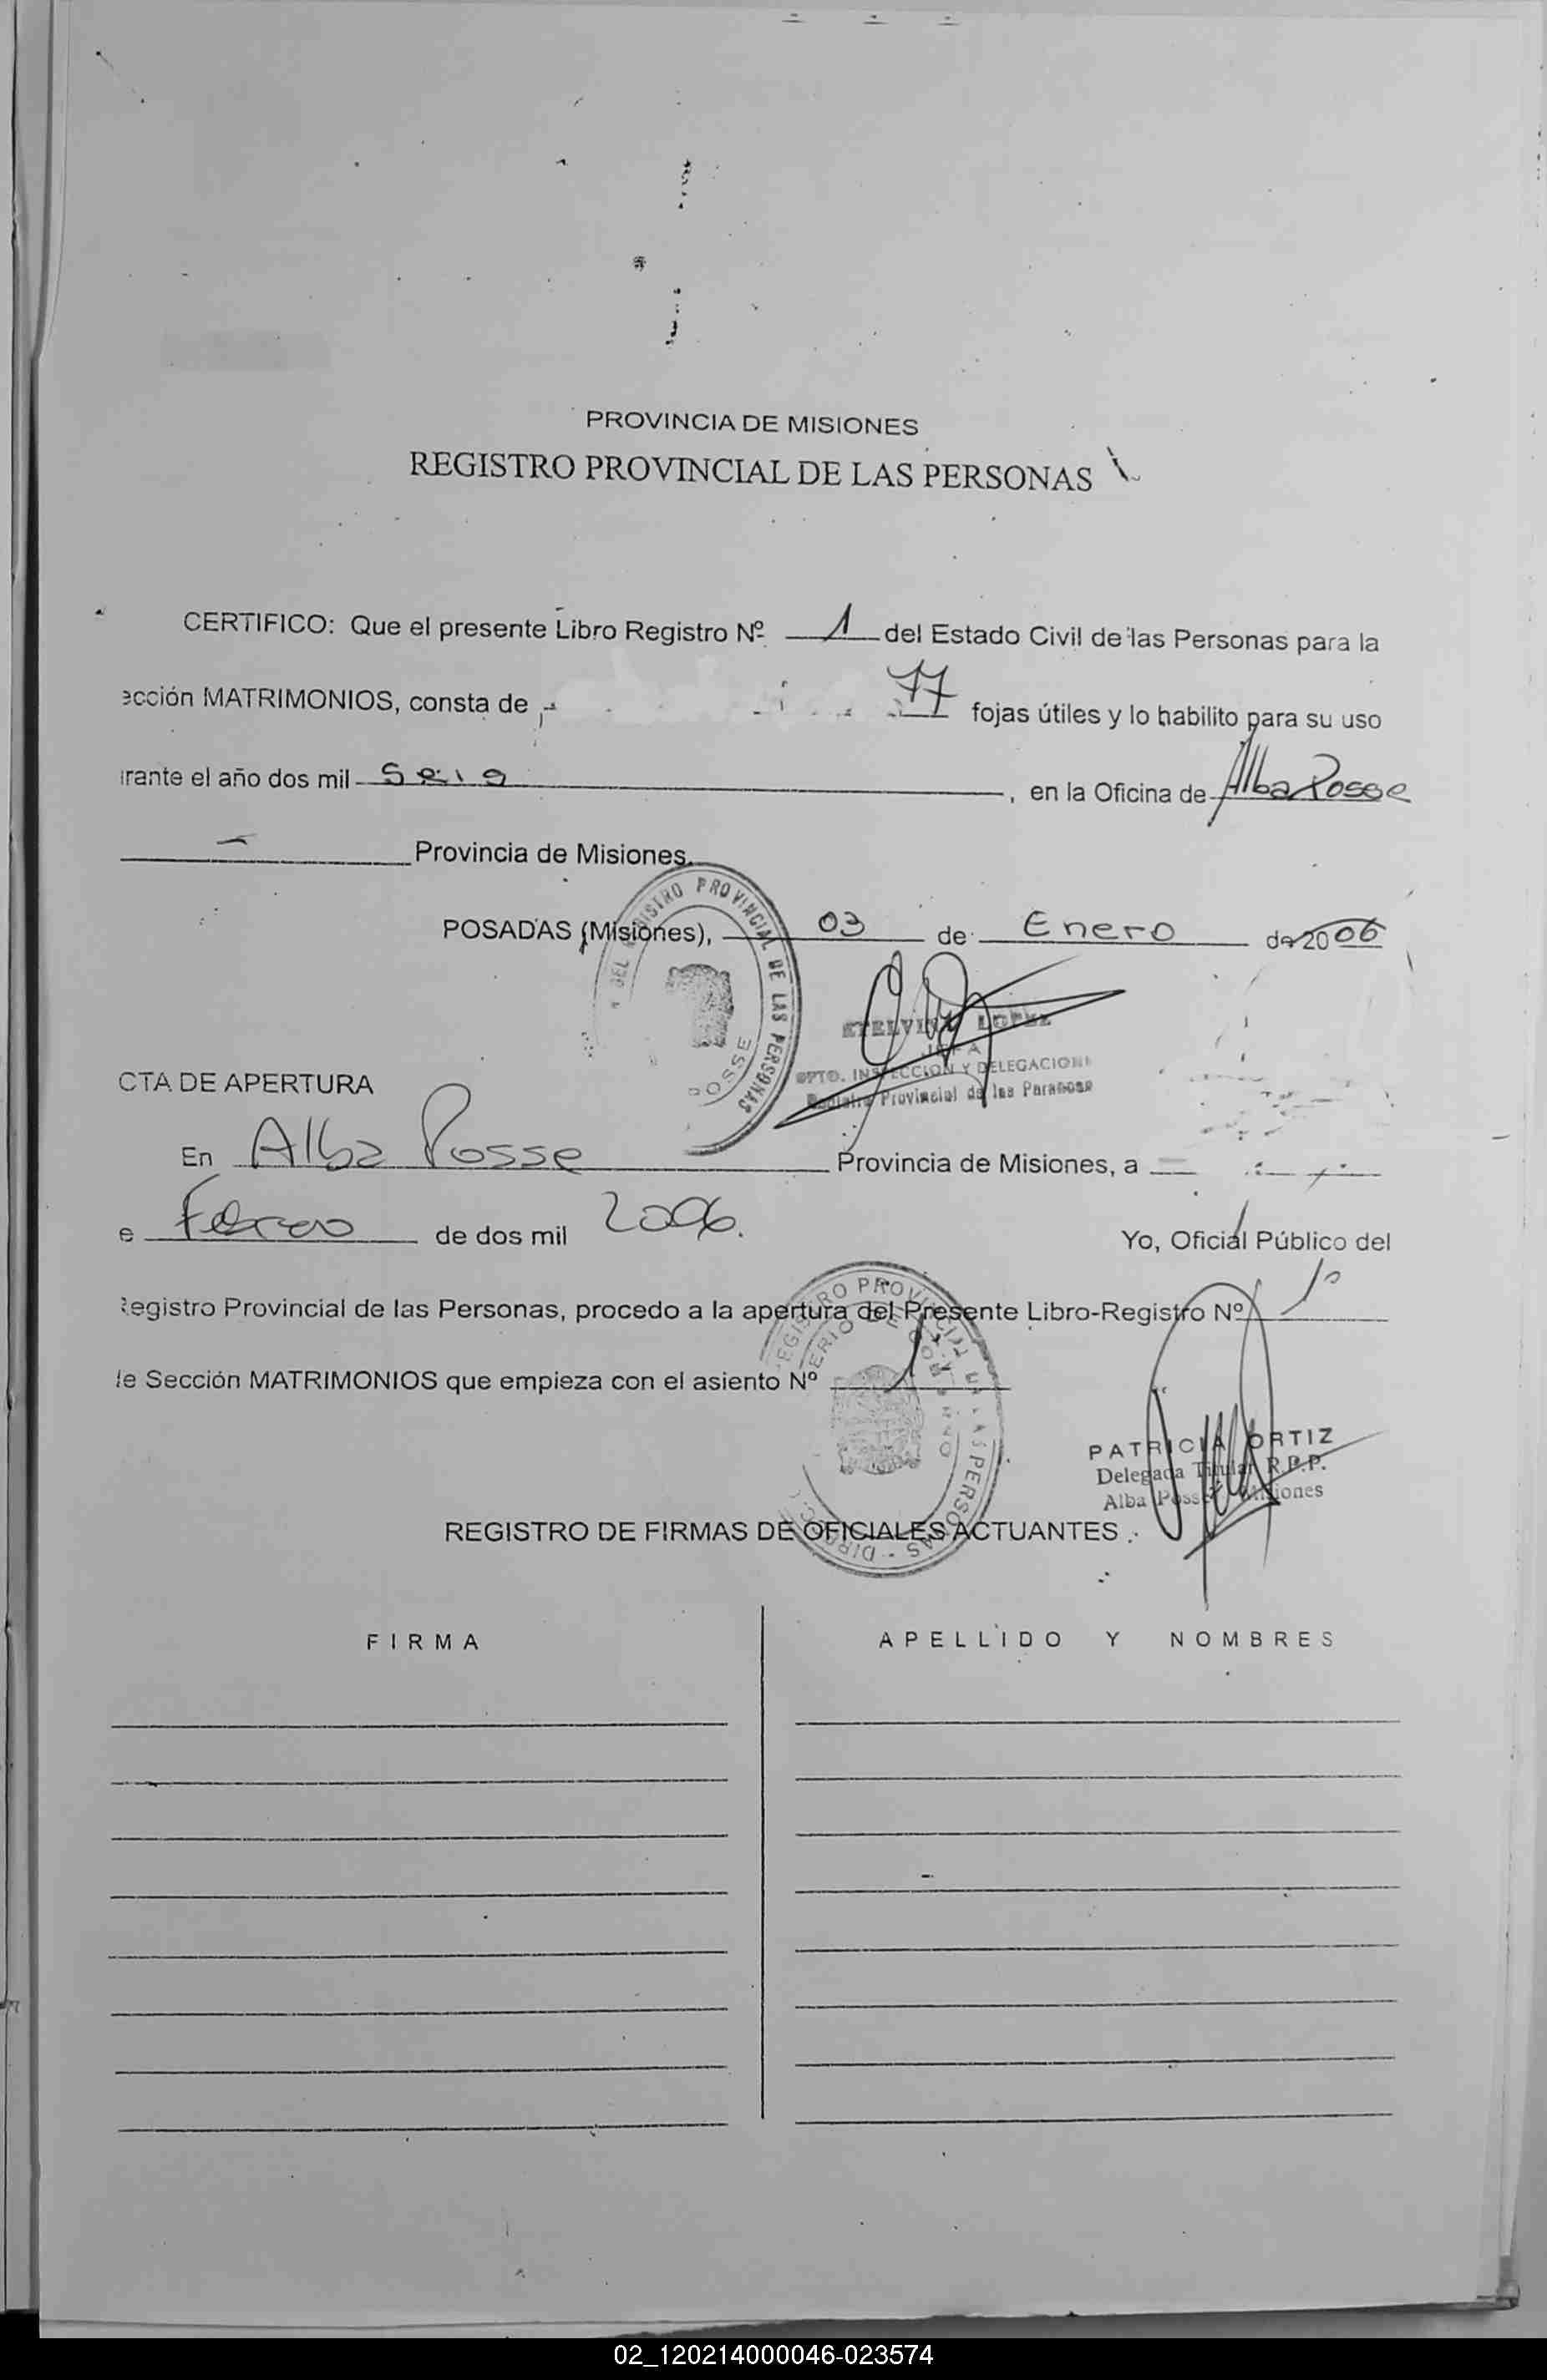 PROVINCIA DE MISIONES
REGISTRO PROVINCIAL DE LAS PERSONAS
CERTIFICO: Que el presente Libro Registro Nº 1 del Estado Civil de las Personas para la
ección MATRIMONIOS, consta de 77 fojas útiles y lo habilito para su uso
irante el año dos mil Seis, en la Oficina de Alba Posse
Provincia de Misiones.
POSADAS (Misiones), 03 de Enero de 2006
REGISTRO PROVINCIAL DE LAS PERSONAS
POSSE
LOPEZ
JEFA
DPTO. INSPECCION Y DELEGACIONE
Registro Provincial de las Personas
CTA DE APERTURA
En Alba Posse Provincia de Misiones, a
e Febrero de dos mil 2006. Yo, Oficial Público del
Registro Provincial de las Personas, procedo a la apertura del Presente Libro-Registro Nº 1º
de Sección MATRIMONIOS que empieza con el asiento Nº 1
PATRICIA ORTIZ
Delegada Titular R.P.P.
Alba Posse Misiones
REGISTRO DE FIRMAS DE OFICIALES ACTUANTES
FIRMA APELLIDO Y NOMBRES
02_120214000046-023574